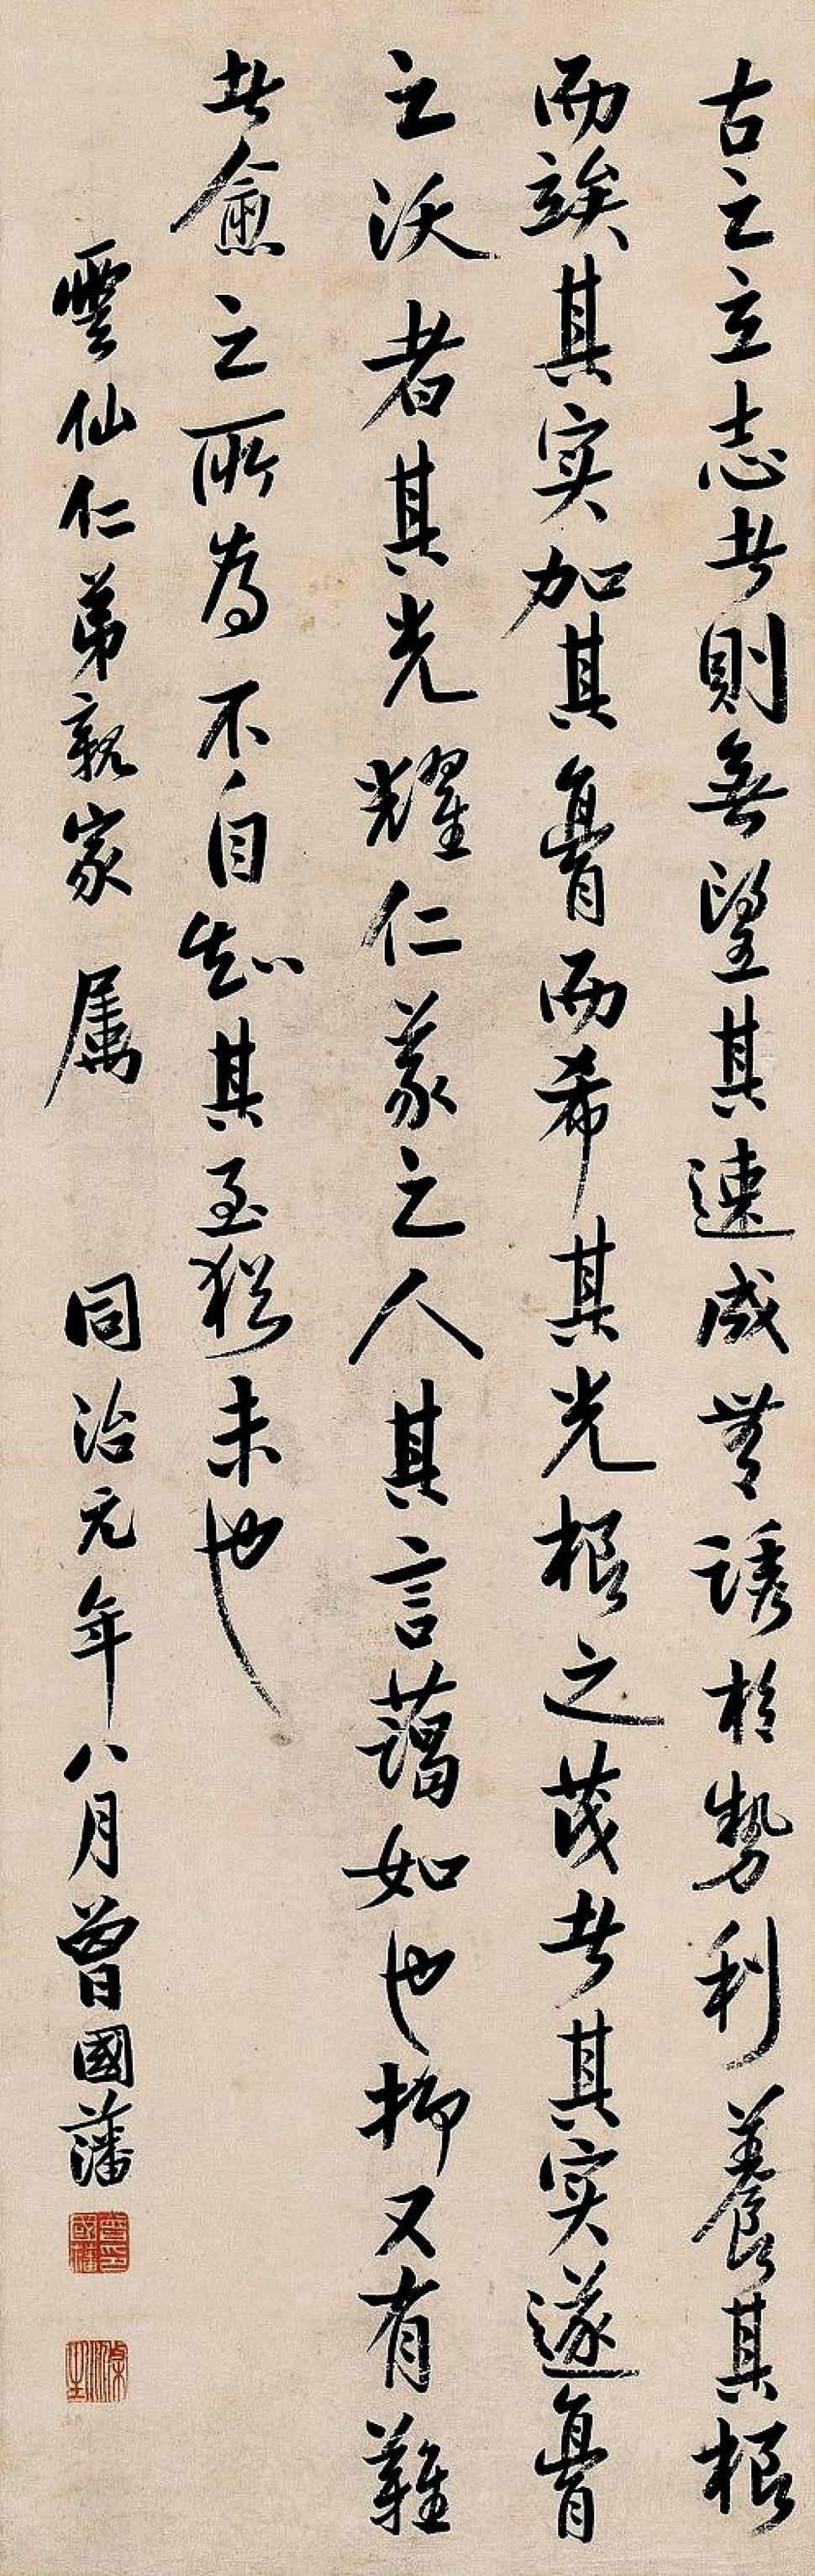 古之立志者則無望其速成無誘於勢利養其根
而竢其實加其膏而希其光根之茂者其實遂膏
之沃者其光耀仁義之人其言藹如也抑又有難
者愈之所為不自知其至猶未也
雲仙仁弟親家屬 同治元年八月曾國藩